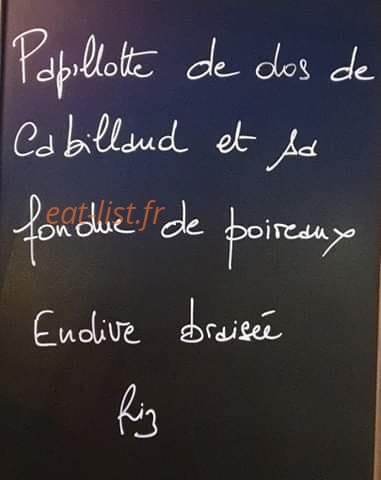 Papillotte de dos de
Cabillaud et sa
eat-list.fr
fondue de poireaux
Endive braisée
Riz